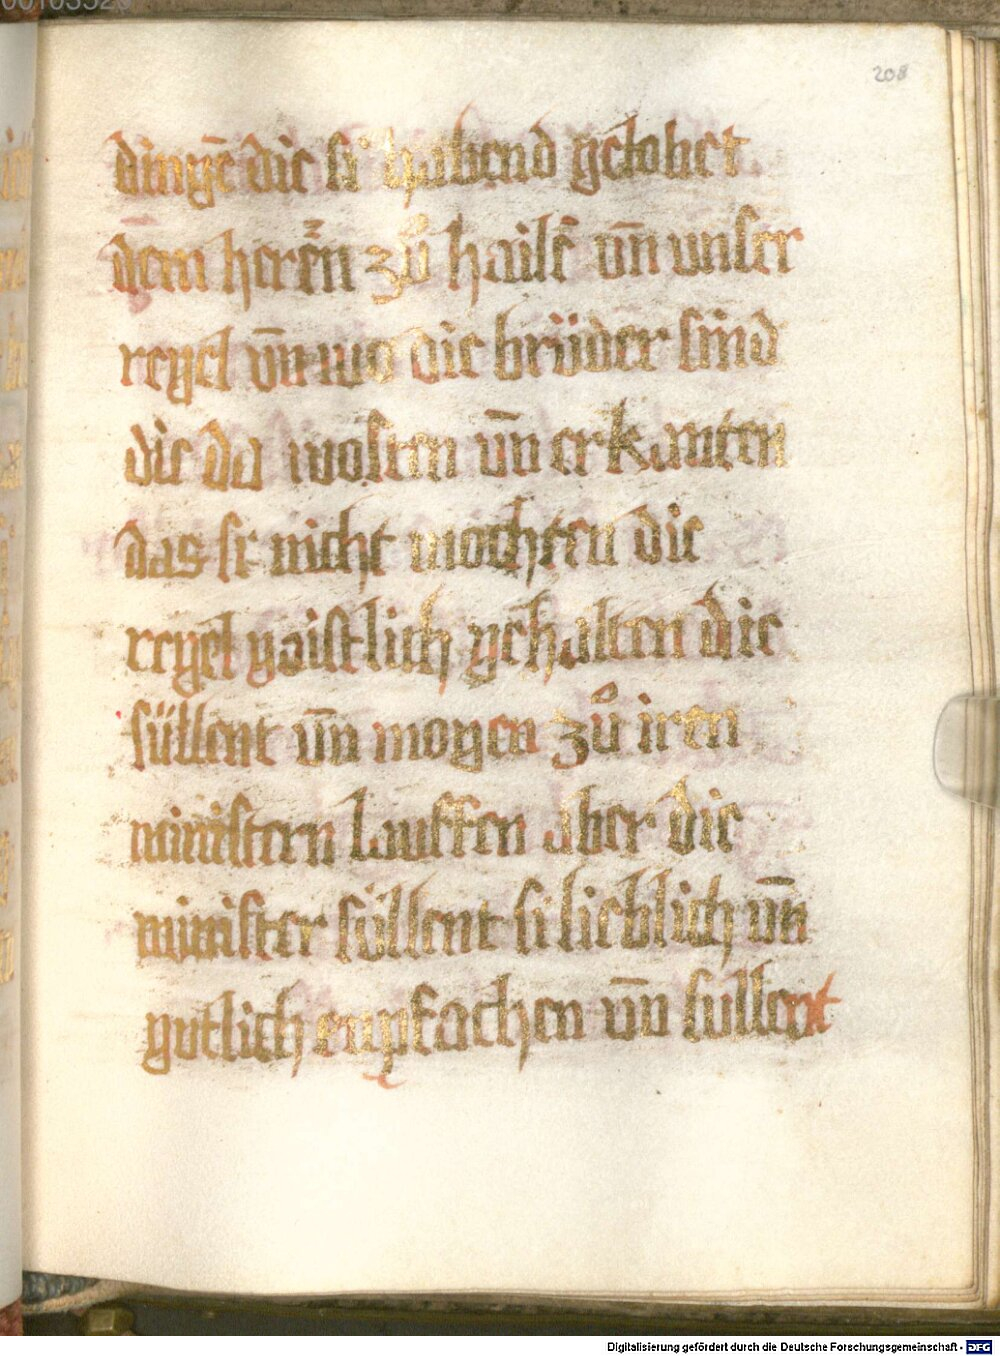 208
dingē die si habend gelobet
dem herēn zů hailē vn̄ vnser
regel vn̄ wo die brüder sind
die da wosten vn̄ erkanten
das si nicht mochten die
regel gaistlich gehalten die
süllent vn̄ mogen zů iren
ministern lauffen aber die
minister süllent si lieblich vn̄
gutlich enpfachen vn̄ sullent
Digitalisierung gefördert durch die Deutsche Forschungsgemeinschaft - DFG